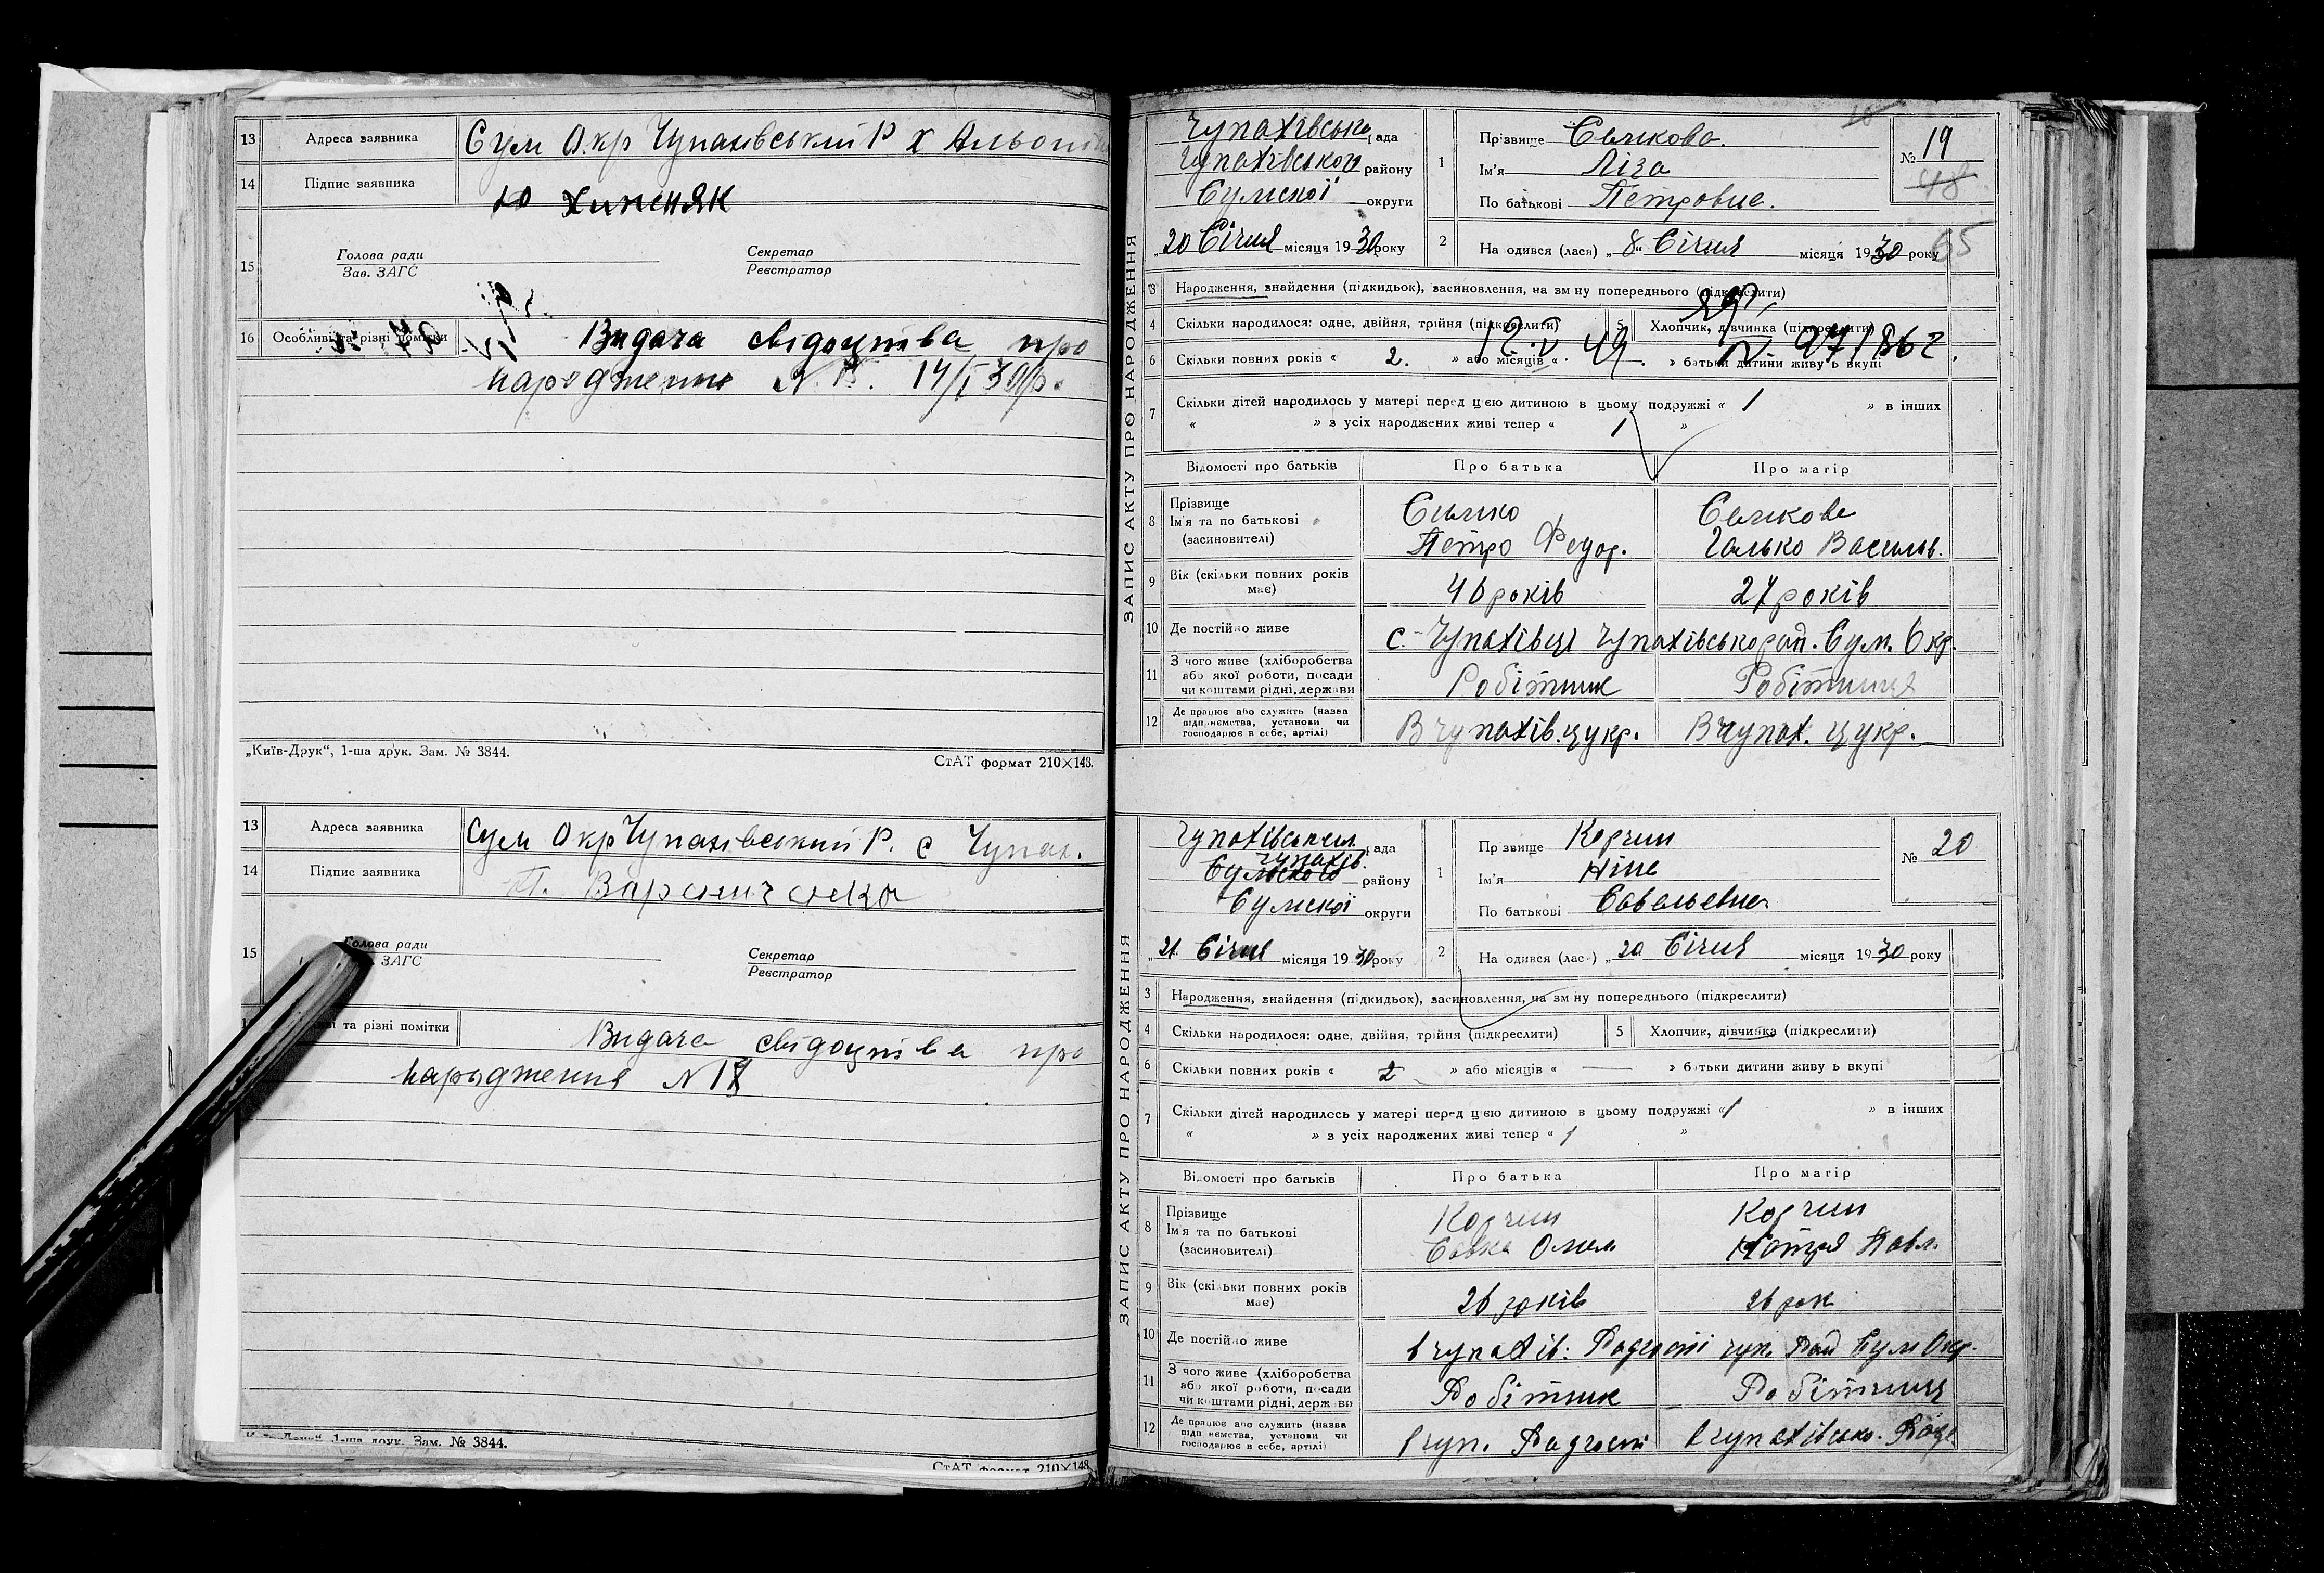 13 Адреса заявника Сум Окр Чупахівський Р х Альоши
14 Підпис заявника Хименяк
15 Голова ради Секретар
Зав. ЗАГС Реєстратор
16 Особливі та різні помітки Видача свідоцтва про
народження 14/I 30р.
„Київ-Друк“, 1-ша друк. Зам. № 3844.
СтАТ формат 210×148.
13 Адреса заявника Сум Окр Чупахівський Р. с Чупах.
14 Підпис заявника П.
15 Голова ради Секретар
ЗАГС Реєстратор
та різні помітки Видача свідоцтва про
народження N 17
1-ша друк. Зам. № 3844.
СтАТ формат 210×148
ЗАПИС АКТУ ПРО НАРОДЖЕННЯ
Чупахівська рада
Чупахівського району
Сумської округи
„20 Січня місяця 1930 року
1 Прізвище
Ім'я Ліза
По батькові Петровна.
№ 19
48
65
2 На одився (лася) „8“ Січня місяця 1930 року
3 Народження, знайдення (підкидьок), засиновлення, на зм ну попереднього (підкреслити)
4 Скільки народилося: одне, двійня, трійня (підкреслити) 5 Хлопчик, дівчинка (підкреслити)
6 Скільки повних років « 2. » або місяців « » батьки дитини живу ь вкупі
7 Скільки дітей народилось у матері перед цією дитиною в цьому подружжі « 1 » в інших
« » з усіх народжених живі тепер « 1 »
Відомості про батьків Про батька Про матір
8 Прізвище
Ім'я та по батькові
(засиновителі) Петро Федор. Галько Васильв.
9 Вік (скільки повних років має) 40 років 27 років
10 Де постійно живе с. Чупахівці Чупахівського рай. Сум. Окр.
11 З чого живе (хліборобства або якої роботи, посади чи коштами рідні, держави Робітник Робітниця
12 Де працює або служить (назва підприємства, установи чи господарює в себе, артілі) В чупахів. цукр. В чупах. цукр.
ЗАПИС АКТУ ПРО НАРОДЖЕННЯ
Чупахівська рада
чупахів. району
Сумської округи
„21 Січня місяця 1930 року
1 Прізвище Корчин
Ім'я Ніна
По батькові Савельевна
№ 20
2 На одився (лася) „20 Січня місяця 1930 року
3 Народження, знайдення (підкидьок), засиновлення, на зм ну попереднього (підкреслити)
4 Скільки народилося: одне, двійня, трійня (підкреслити) 5 Хлопчик, дівчинка (підкреслити)
6 Скільки повних років « 2 » або місяців « — » батьки дитини живу ь вкупі
7 Скільки дітей народилось у матері перед цією дитиною в цьому подружжі « 1 » в інших
« » з усіх народжених живі тепер « 1 »
Відомості про батьків Про батька Про матір
8 Прізвище Корчин Корчин
Ім'я та по батькові
(засиновителі) Савка Омел. Мотря Павл.
9 Вік (скільки повних років має) 26 років 26 рок
10 Де постійно живе в чупахів. Радгоспі чуп. Рай Сум Окр.
11 З чого живе (хліборобства або якої роботи, посади чи коштами рідні, держави Робітник Робітниця
12 Де працює або служить (назва підприємства, установи чи господарює в себе, артілі) в чуп. Радгоспі в чупахівсько. Радг